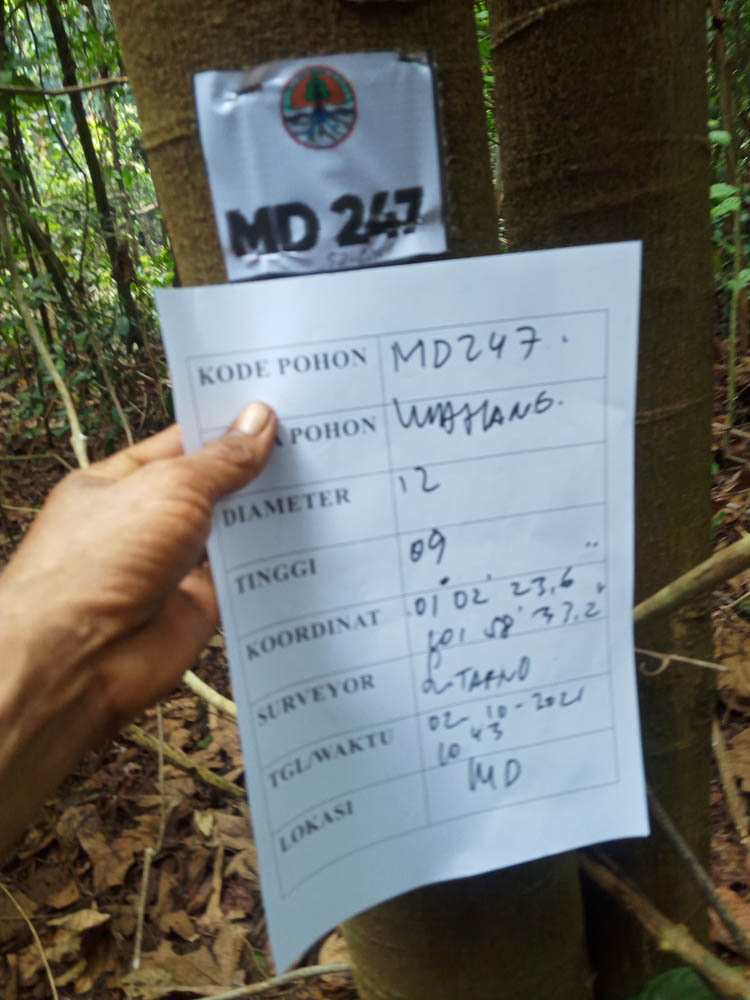 MD 247
KODE POHON MD247.
POHON
DIAMETER 12
TINGGI 09
KOORDINAT 01° 02' 23,6"
101 58' 37,2"
SURVEYOR
TGL/WAKTU 02-10-2021
10 43
LOKASI MD